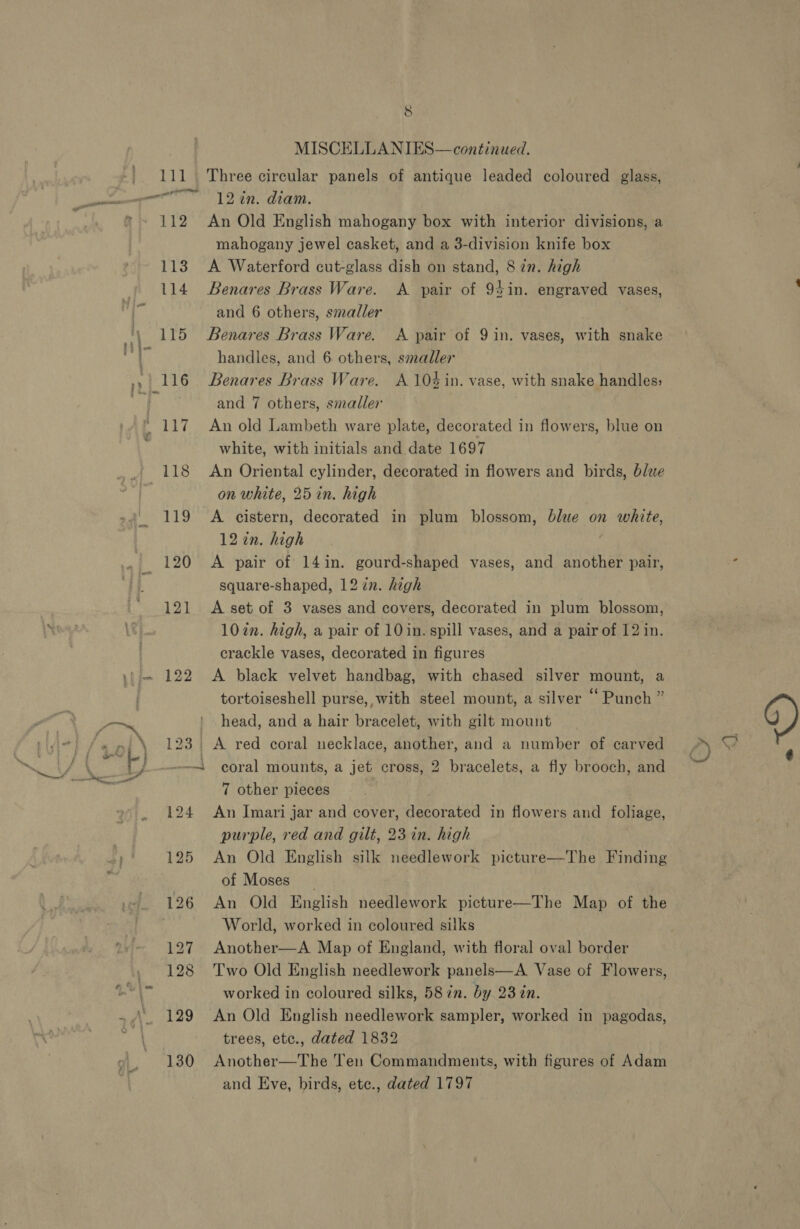 8
MISCELLANIES—continued.
111 Three circular panels of antique leaded coloured glass,
12 in. diam.
112 An Old English mahogany box with interior divisions, a
mahogany jewel casket, and a 3-division knife box
113 A Waterford cut-glass dish on stand, 8 in. high
114 Benares Brass Ware. A pair of 9½ in. engraved vases,
and 6 others, smaller
115 Benares Brass Ware. A pair of 9 in. vases, with snake
handles, and 6 others, smaller
116 Benares Brass Ware. A 10½ in. vase, with snake handles,
and 7 others, smaller
117 An old Lambeth ware plate, decorated in flowers, blue on
white, with initials and date 1697
118 An Oriental cylinder, decorated in flowers and birds, blue
on white, 25 in. high
119 A cistern, decorated in plum blossom, blue on white,
12 in. high
120 A pair of 14 in. gourd-shaped vases, and another pair,
square-shaped, 12 in. high
121 A set of 3 vases and covers, decorated in plum blossom,
10 in. high, a pair of 10 in. spill vases, and a pair of 12 in.
crackle vases, decorated in figures
122 A black velvet handbag, with chased silver mount, a
tortoiseshell purse, with steel mount, a silver “Punch”
head, and a hair bracelet, with gilt mount
123 A red coral necklace, another, and a number of carved
coral mounts, a jet cross, 2 bracelets, a fly brooch, and
7 other pieces
124 An Imari jar and cover, decorated in flowers and foliage,
purple, red and gilt, 23 in. high
125 An Old English silk needlework picture—The Finding
of Moses
126 An Old English needlework picture—The Map of the
World, worked in coloured silks
127 Another—A Map of England, with floral oval border
128 Two Old English needlework panels—A Vase of Flowers,
worked in coloured silks, 58 in. by 23 in.
129 An Old English needlework sampler, worked in pagodas,
trees, etc., dated 1832
130 Another—The Ten Commandments, with figures of Adam
and Eve, birds, etc., dated 1797